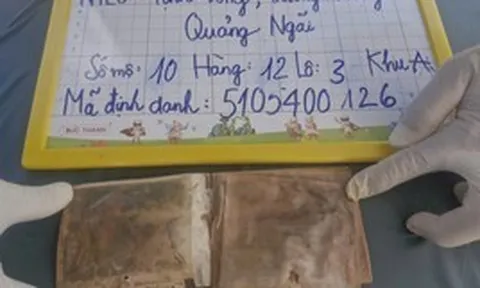 Quảng Ngãi
Số mộ: 10 Hàng: 12 Lô: 3 Khu A
Mã định danh: 5105400126